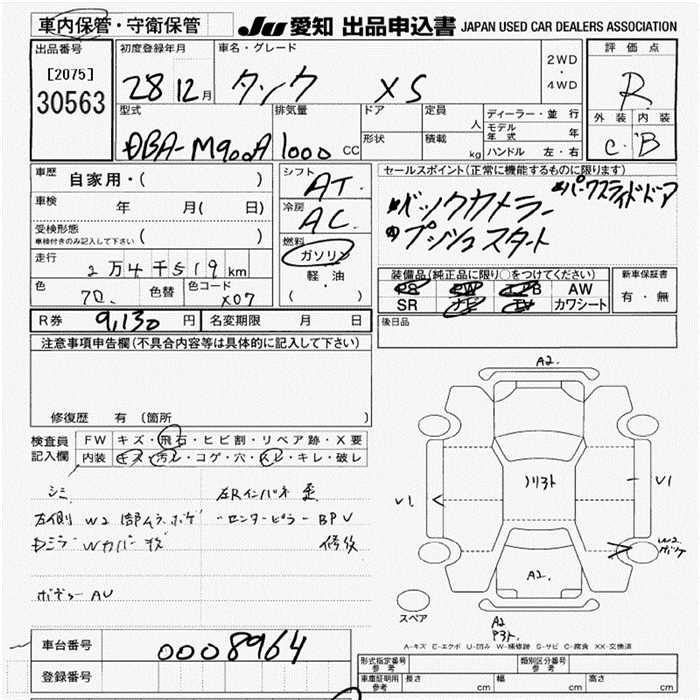 車内保管・守衛保管
JU 愛知 出品申込書 JAPAN USED CAR DEALERS ASSOCIATION
出品番号
[2075]
30563
初度登録年月
28 12月
車名・グレード
タンク XS
2WD
・
4WD
評価点
R
外装 内装
C B
型式
DBA-M900A
排気量
1000 CC
ドア
形状
定員
人
積載
kg
ディーラー・並行
モデル年式 年
ハンドル 左・右
車歴
自家用・( )
車検
年 月( 日)
受検形態
車検付きのみ記入して下さい
( )
走行
2万4千519km
色
色替
色コード
X07
シフト
AT
冷房
AC
燃料
ガソリン
軽・油
( )
セールスポイント(正常に機能するものに限ります)
バックカメラー
パワースライドドア
プッシュスタート
装備品(純正品に限り○をつけてください)
PS PW エアB AW
SR ナビ TV カワシート
新車保証書
有・無
後日品
R券 9,130円 名変期限 月 日
注意事項申告欄(不具合内容等は具体的に記入して下さい)
修復歴 有 (箇所 )
検査員記入欄
FW キズ・飛石・ヒビ割・リペア跡・X要
内装 キズ・汚レ・コゲ・穴・スレ・キレ・破レ
シミ
左Rインパネ 歪
左側 W2 部ムラ ボケ
センターピラー BPV
Dミラー Wカバー
修復
ボデー AU
A2.
V1.
V1
W2
ボケ
A2.
スペア
A2
A-キズ E-エクボ U-凹み W-補修跡 S-サビ C-腐食 XX-交換済
車台番号
0008964
登録番号
形式指定番号
参考
類別区分番号
参考
車庫証明用
参考
長さ cm 幅 cm 高さ cm